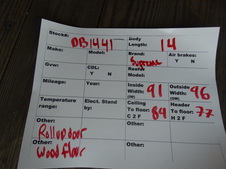 Stock#: DB1441
Body Length: 14
Make:
Model:
Brand: Supreme
Air brakes: Y N
Gvw:
CDL: Y N
Reefer Model:
Mileage:
Year:
Inside Width: 91 (W)
Outside Width: 96 (W)
Temperature range:
Elect. Stand by:
Ceiling To floor: 84 C 2 F
Header To floor: 77 H 2 F
Other: Rollup door
Wood floor
Other:
Other: